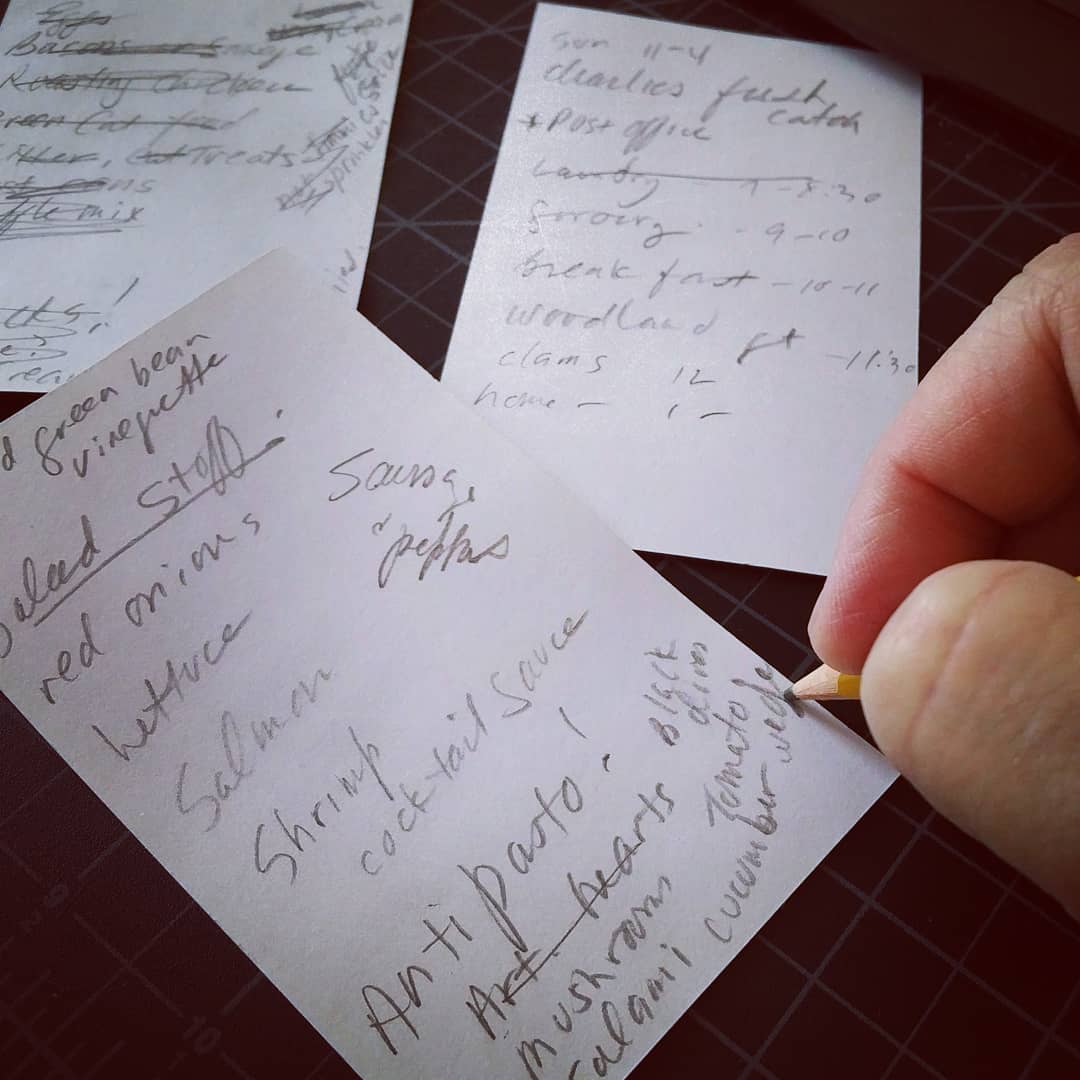 Eggs
Bacons or Sausage
Roasting Chicken
Green Cat food
Litter, Cat Treats
mix
sprinkles
Sun 11-4
charlies fresh
catch
+ Post office
Laundry - 7-8:30
Grocery - 9-10
break fast - 10-11
woodland pt - 11:30
clams 12
home - 1 -
green bean
viregrette
Salad Stuff
red onions
Lettuce
Salmon
Shrimp
cocktail Sauce
Sausg,
peppers
Anti pasto!
Art. hearts
mushrooms
salami
Black
olives
Tomato
cucumber wedge
9
10